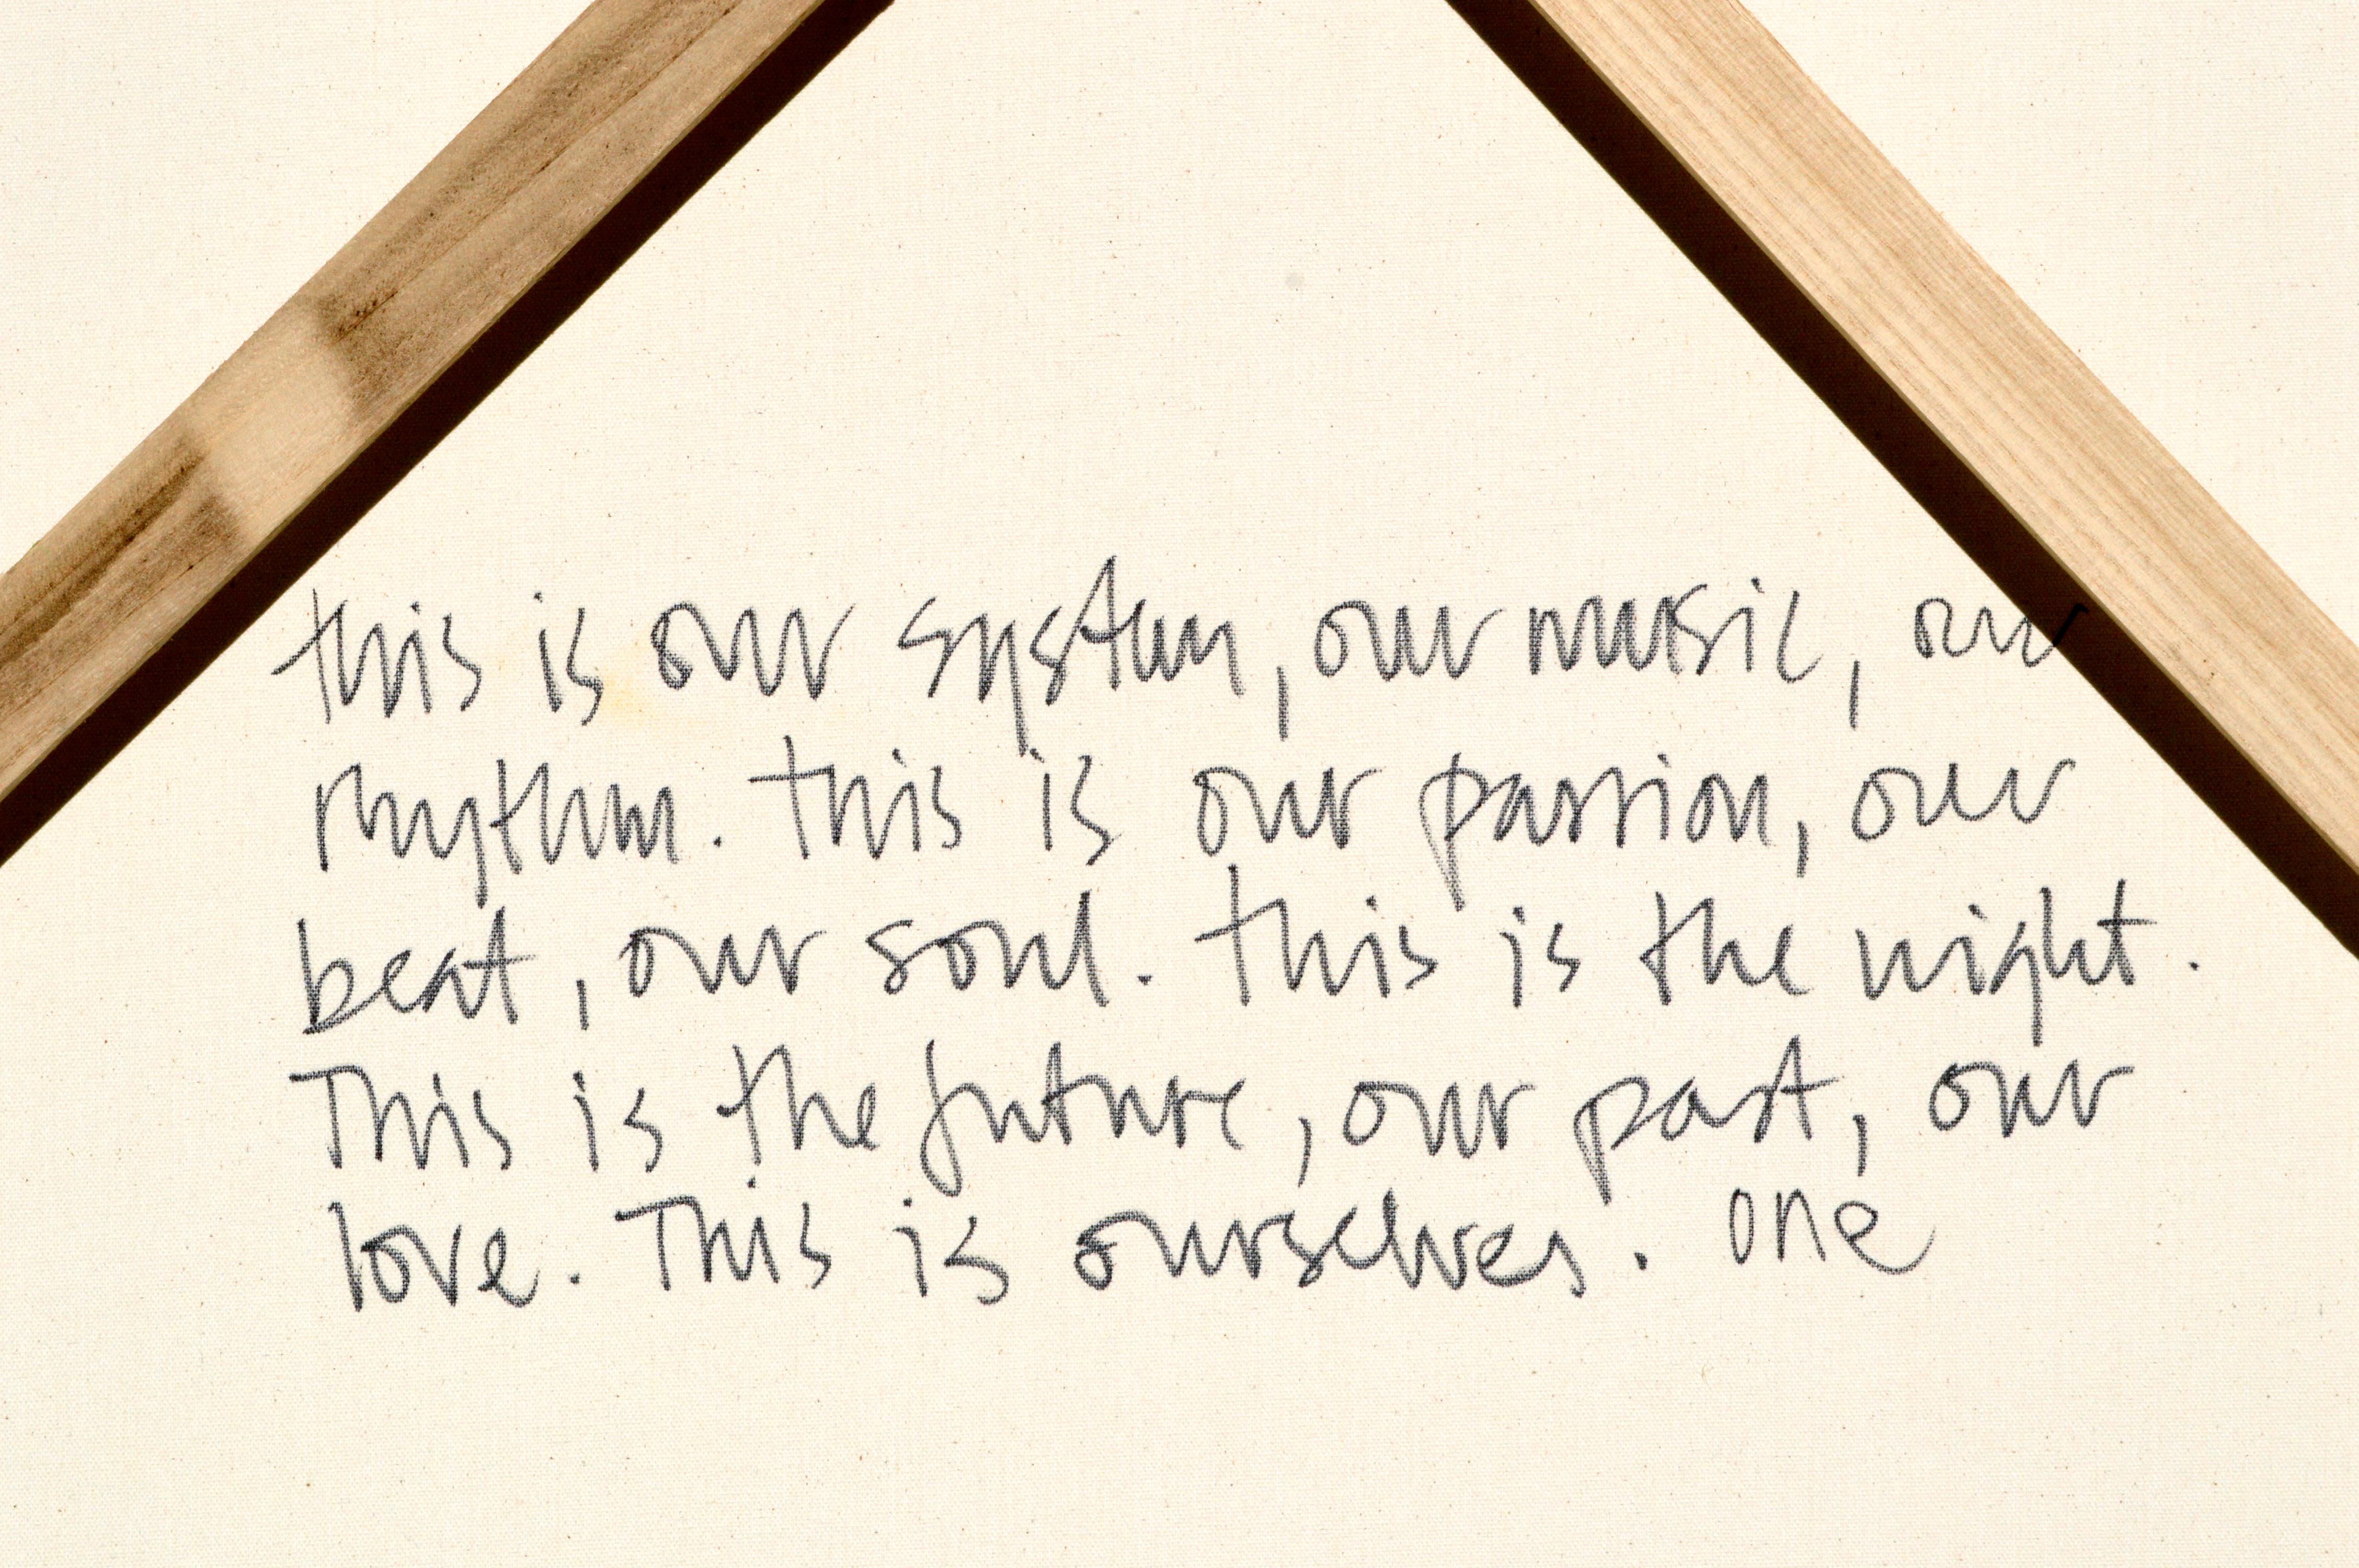 this is our system, our music, our
rhythm. this is our passion, our
beat, our soul. this is the night.
This is the future, our past, our
love. This is ourselves. one